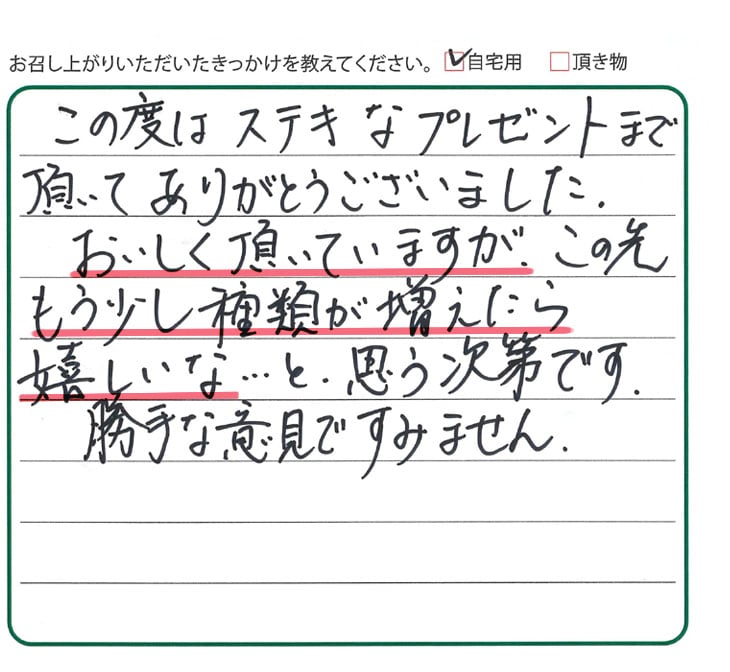 お召し上がりいただいたきっかけを教えてください。 ☑自宅用 □頂き物
この度は ステキ な プレゼントまで
頂いて ありがとうございました.
おいしく頂いていますが. この先
もう少し種類が増えたら
嬉しいな…と. 思う次第です.
勝手な意見ですみません.